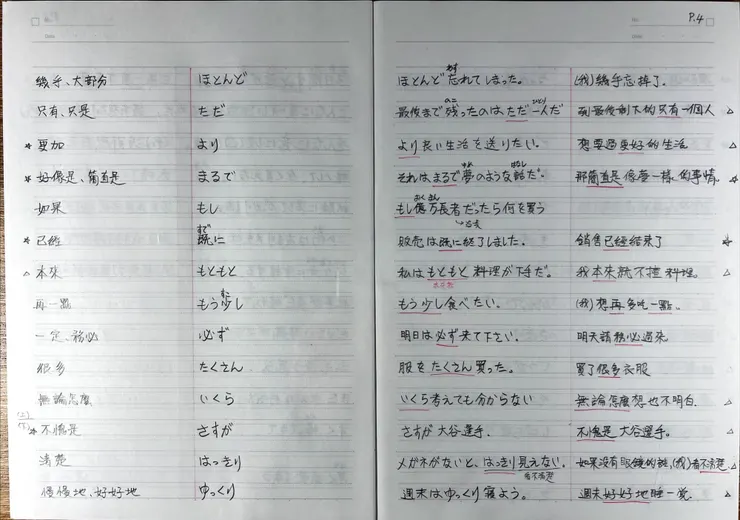 P.4
幾乎、大部分 ほとんど
只有、只是 ただ
☆ 更加 より
☆ 好像是、簡直是 まるで
如果 もし
☆ 已經 既に すで
△ 本來 もともと
再一點 もう少し すこ
一定、務必 必ず
很多 たくさん
無論怎麼 いくら
☆ 不愧是 さすが
清楚 はっきり
慢慢地、好好地 ゆっくり
ほとんど忘れてしまった。 わす (我)幾乎忘掉了。
最後まで残ったのはただ一人だ のこ ひとり 到最後剩下的只有一個人 △
より良い生活を送りたい。 想要過更好的生活 △
それはまるで夢のような話だ。 ゆめ はなし 那簡直是像夢一樣的事情 ☆
もし億万長者だったら何を買う おく まん
販売は既に終了しました。 銷售已經結束了 ☆
私はもともと料理が下手だ。 我本來就不擅料理。 △
もう少し食べたい。 (我)想再多吃一點。
明日は必ず来て下さい。 明天請務必過來
服をたくさん買った。 買了很多衣服
いくら考えても分からない 無論怎麼想也不明白. △
さすが大谷選手. 不愧是大谷選手。 △
メガネがないと、はっきり見えない. 看不清楚 如果沒有眼鏡的話,(我)看不清楚. △
週末はゆっくり寝よう。 週末好好地睡一覺. △